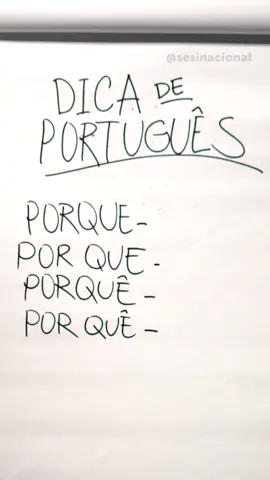 @sesinacional
DICA DE
PORTUGUÊS
PORQUE-
POR QUE-
PORQUÊ-
POR QUÊ-